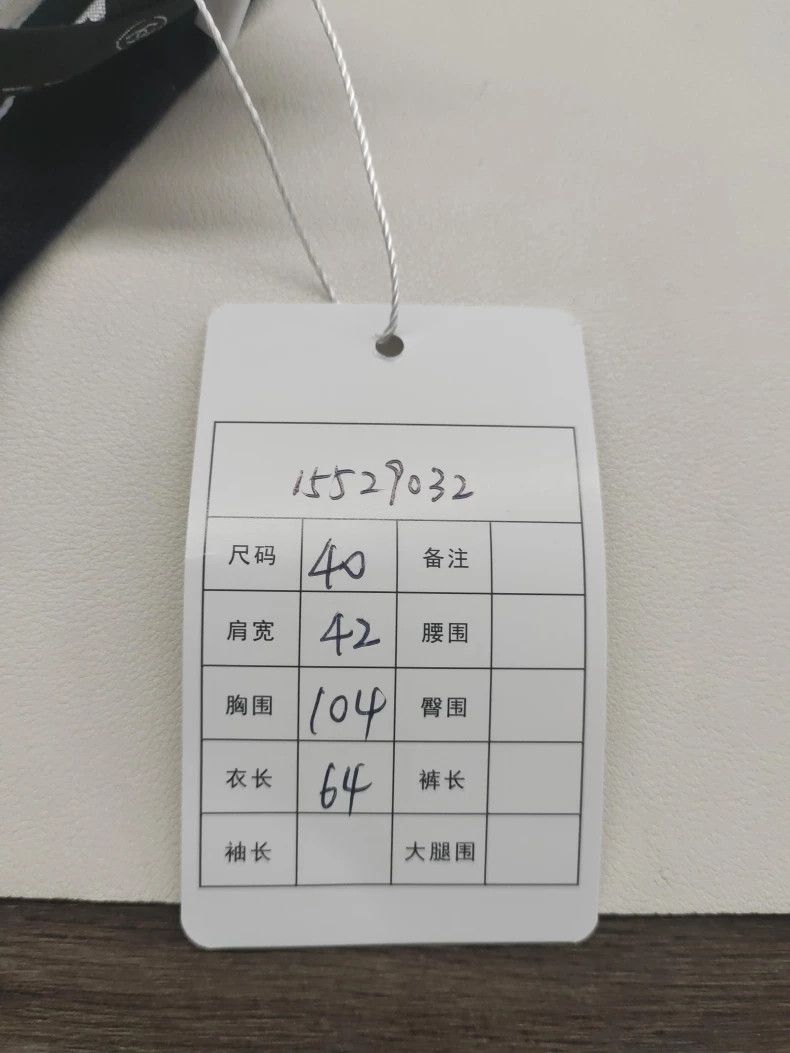 15529032
尺码 40 备注
肩宽 42 腰围
胸围 104 臀围
衣长 64 裤长
袖长 大腿围